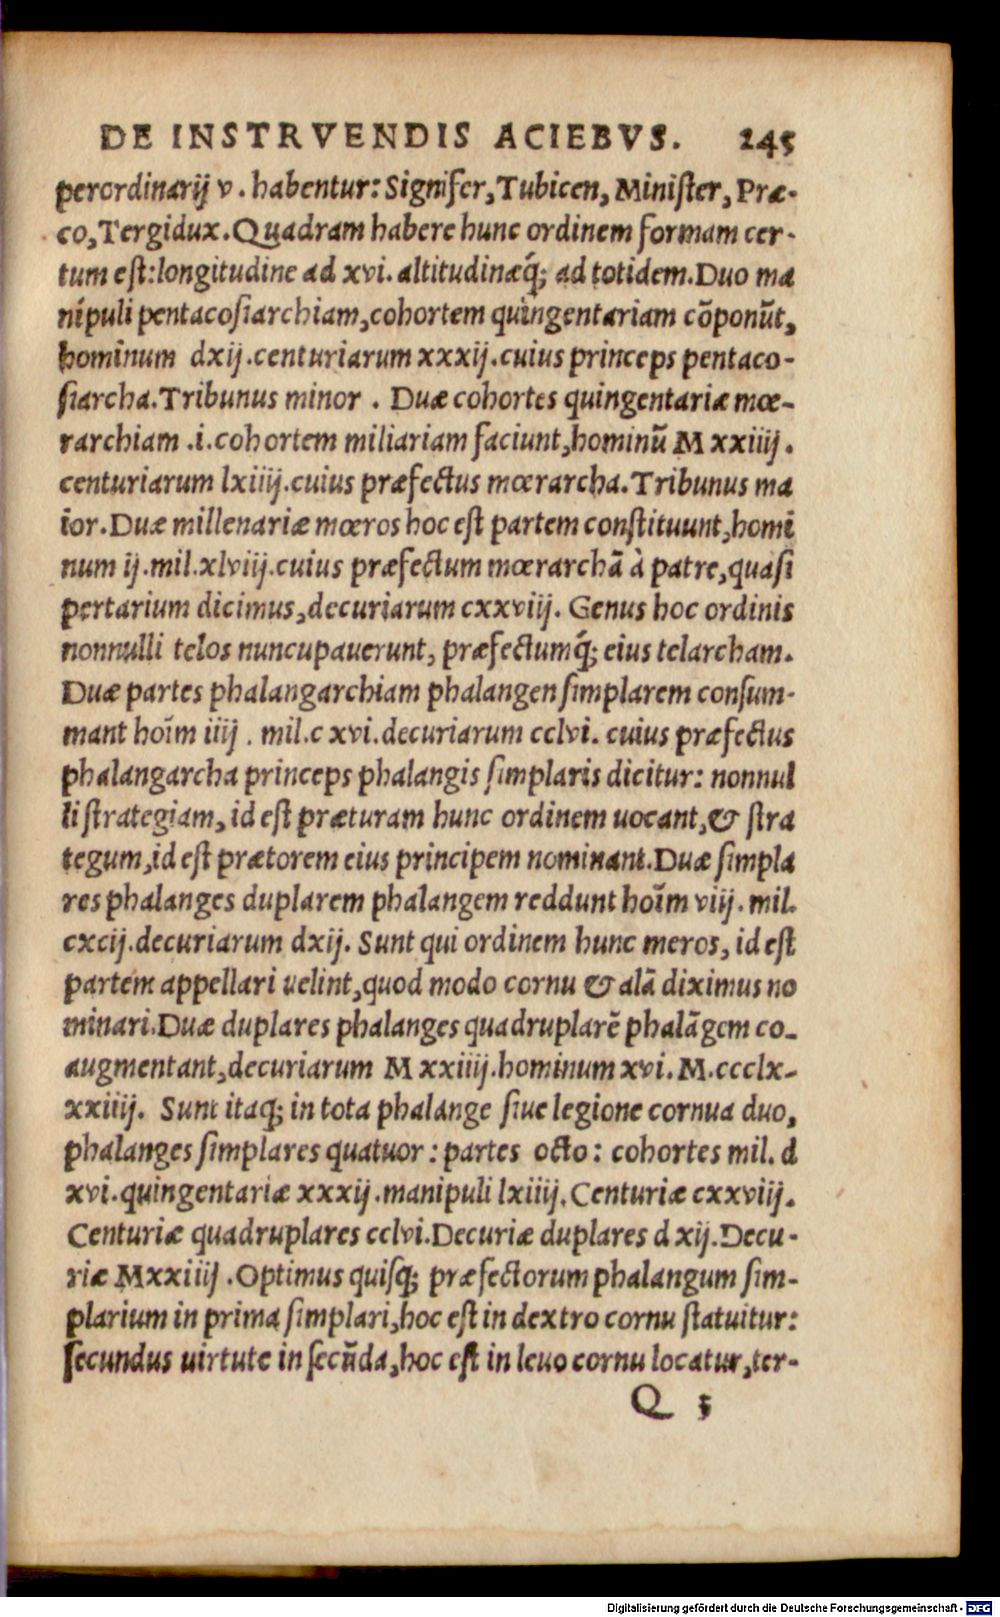 DE INSTRVENDIS ACIEBVS. 245
perordinarij v. habentur: Signifer, Tubicen, Minister, Præ-
co, Tergidux. Quadram habere hunc ordinem formam cer-
tum est: longitudine ad xvi. altitudinæq́; ad totidem. Duo ma
nipuli pentacosiarchiam, cohortem quingentariam cōponūt,
hominum dxij. centuriarum xxxij. cuius princeps pentaco-
siarcha. Tribunus minor . Duæ cohortes quingentariæ mœ-
rarchiam .i. cohortem miliariam faciunt, hominū M xxiiij.
centuriarum lxiiij. cuius præfectus mœrarcha. Tribunus ma
ior. Duæ millenariæ mœros hoc est partem constituunt, homi
num ij. mil. xlviij. cuius præfectum mœrarchā à patre, quasi
pertarium dicimus, decuriarum cxxviij. Genus hoc ordinis
nonnulli telos nuncupauerunt, præfectumq́; eius telarcham.
Duæ partes phalangarchiam phalangen simplarem consum-
mant hoīm iiij . mil. c xvi. decuriarum cclvi. cuius præfectus
phalangarcha princeps phalangis simplaris dicitur: nonnul
li strategiam, id est præturam hunc ordinem uocant, & stra
tegum, id est prætorem eius principem nominant. Duæ simpla
res phalanges duplarem phalangem reddunt hoīm viij. mil.
cxcij. decuriarum dxij. Sunt qui ordinem hunc meros, id est
partem appellari uelint, quod modo cornu & alā diximus no
minari. Duæ duplares phalanges quadruplarē phalāgem co-
augmentant, decuriarum M xxiiij. hominum xvi. M. ccclx-
xxiiij. Sunt itaq; in tota phalange siue legione cornua duo,
phalanges simplares quatuor : partes octo : cohortes mil. d
xvi. quingentariæ xxxij. manipuli lxiiij. Centuriæ cxxviij.
Centuriæ quadruplares cclvi. Decuriæ duplares d xij. Decu-
riæ Mxxiiij . Optimus quisq; præfectorum phalangum sim-
plarium in prima simplari, hoc est in dextro cornu statuitur:
secundus uirtute in secūda, hoc est in leuo cornu locatur, ter-
Q 3
Digitalisierung gefördert durch die Deutsche Forschungsgemeinschaft - DFG